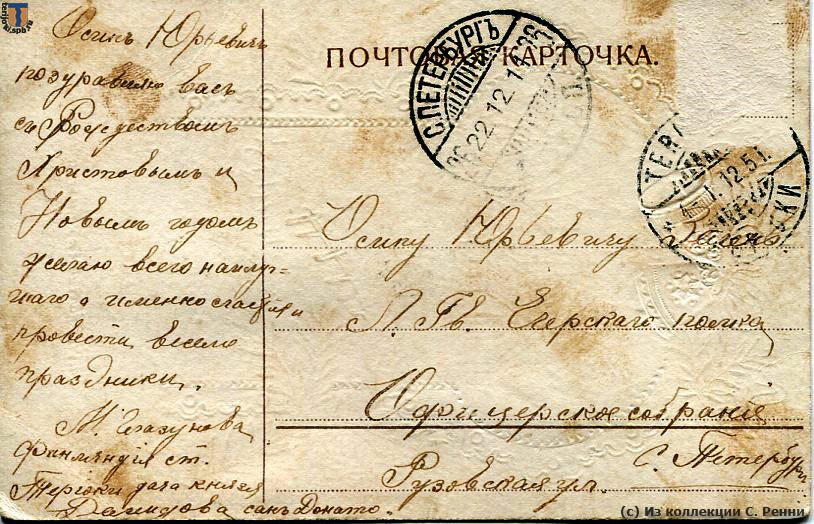 ПОЧТОВАЯ КАРТОЧКА.
С.ПЕТЕРБУРГЪ
22.12.1
ТЕР
.12.51
КИ
Осипъ Юрьевичъ
поздравляю васъ
съ Рождествомъ
Христовымъ и
Новымъ годомъ
желаю всего наилуч-
шаго а именно счастія и
провести весело
праздники.
М. Глазунова
Финляндія ст.
Териоки дача князя
Демидова санъ Донато.
Осипу Юрьевичу
Л. Гв. Егерскаго полка
Офицерское собраніе
С. Петербургъ
Рузовская ул.
terijoki.spb.ru
(c) Из коллекции С. Ренни